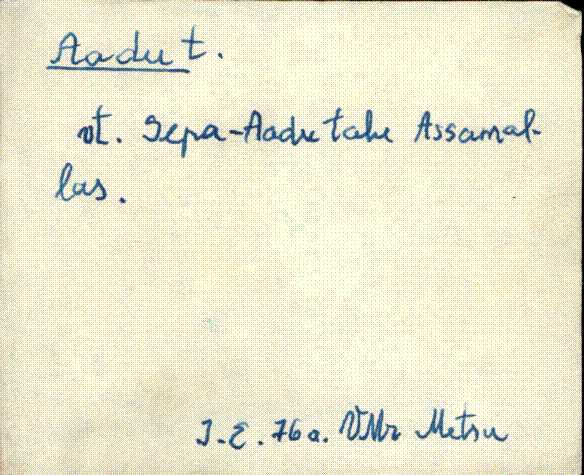 Aadu t.
vt. Sepa-Aadu talu Assamal-
las.
J. E. 76a. VMr Metsu